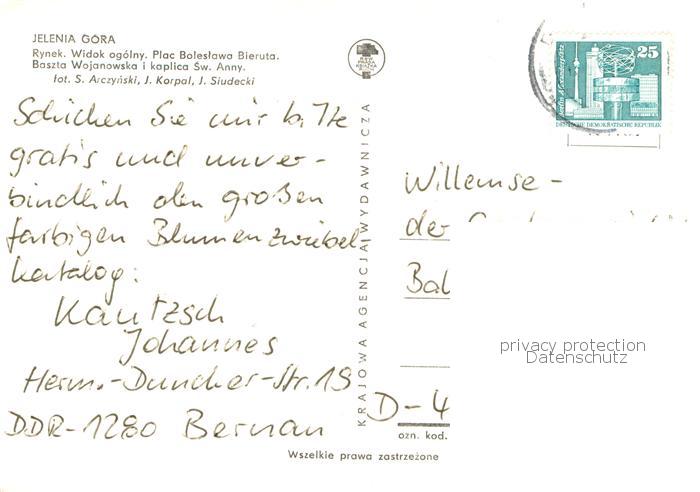 JELENIA GÓRA
Rynek. Widok ogólny. Plac Bolesława Bieruta.
Baszta Wojanowska i kaplica Św. Anny.
fot. S. Arczyński, J. Korpal, J. Siudecki
Schicken Sie mir bitte
gratis und unver-
bindlich den großen
farbigen Blumenzwiebel
katalog:
Kautzsch
Johannes
Herm.-Duncker-Str. 19
DDR-1280 Bernau
KRAJOWA AGENCJA WYDAWNICZA
25
Berlin Alexanderplatz
DEUTSCHE DEMOKRATISCHE REPUBLIK
Willemse-
der
D-4
ozn. kod.
Wszelkie prawa zastrzeżone
privacy protection
Datenschutz